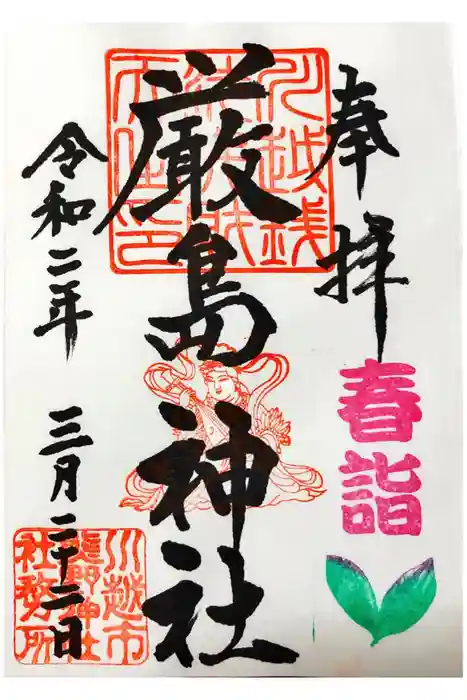 奉拝
春詣
厳島神社
令和二年
三月二十二日
川越市
熊野神社
社務所